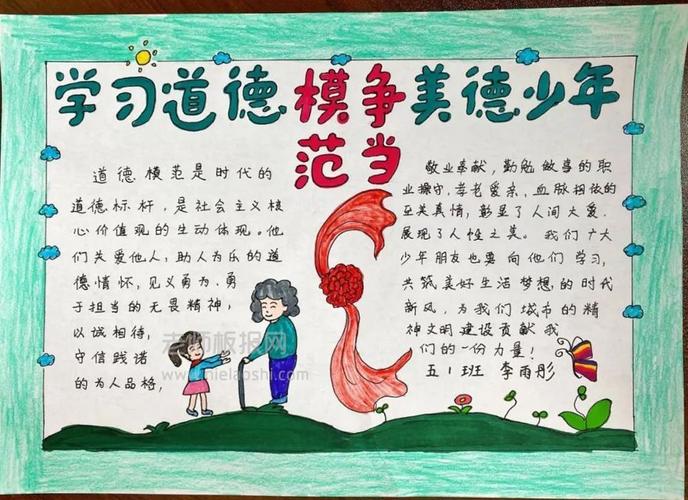 学习道德模争美德少年
范当
道德模范是时代的
道德标杆，是社会主义核
心价值观的生动体现。他
们关爱他人，助人为乐的道
德情怀，见义勇为、勇
于担当的无畏精神，
以诚相待，
守信践诺
的为人品格，
敬业奉献，勤勉做事的职
业操守，孝老爱亲，血脉相依的
至美真情，彰显了人间大爱，
展现了人性之美。我们广大
少年朋友也要向他们学习，
共筑美好生活梦想的时代
新风，为我们城市的精
神文明建设贡献我
们的一份力量！
五1班 李雨彤
老师板报网